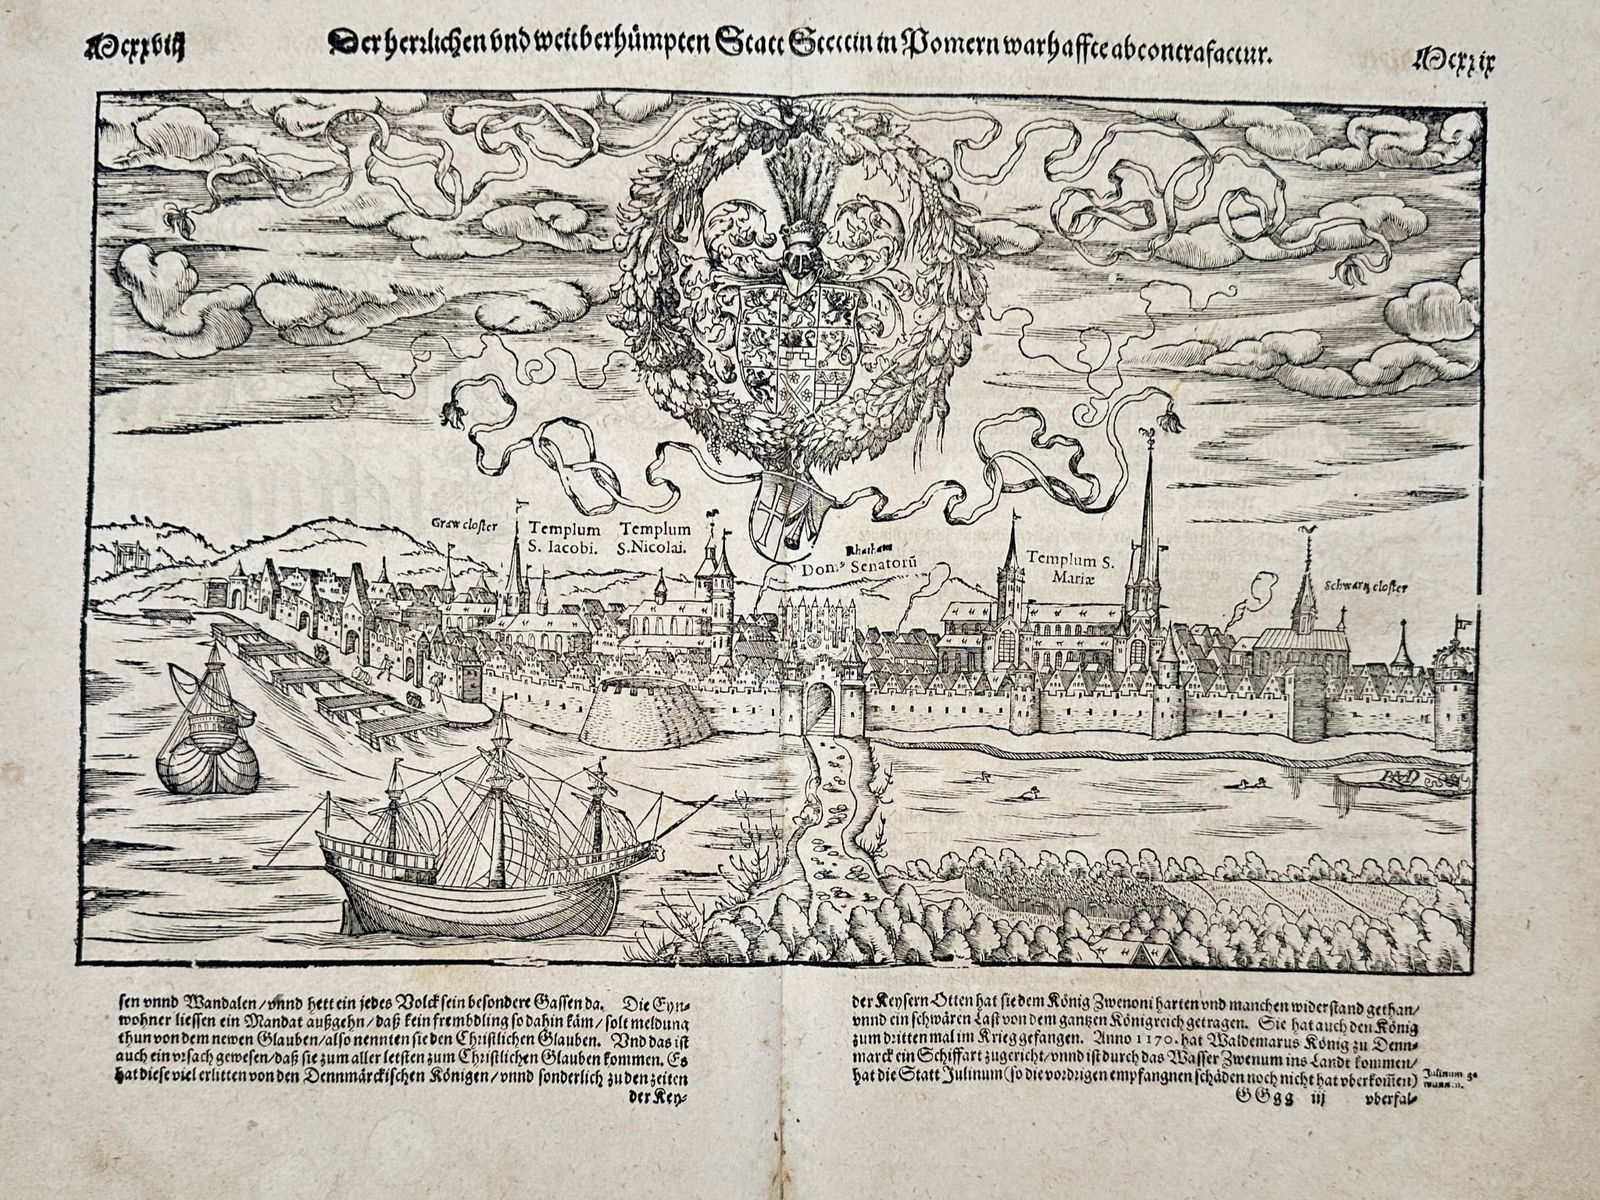 Mcxxviij
Der herrlichen vnd weitberhümpten Statt Stettin in Pomern warhaffte abcontrafactur.
Mcxxix
Graw closter
Templum
S. Iacobi.
Templum
S. Nicolai.
Rhathauß
Dom.ᵒ Senatorū
Templum S.
Mariæ
Schwartz closter
sen vnnd Wandalen/vnnd hett ein jedes Volck sein besondere Gassen da. Die Eyn-
wohner liessen ein Mandat außgehn/daß kein frembdling so dahin käm/solt meldung
thun von dem newen Glauben/also nennten sie den Christlichen Glauben. Vnd das ist
auch ein vrsach gewesen/daß sie zum aller letsten zum Christlichen Glauben kommen. Es
hat diese viel erlitten von den Dennmärckischen Königen/vnnd sonderlich zu den zeiten
der Key-
der Keysern Otten hat sie dem König Zwenoni harten vnd manchen widerstand gethan/
vnnd ein schwären Last von dem gantzen Königreich getragen. Sie hat auch den König
zum dritten mal im Krieg gefangen. Anno 1170. hat Waldemarus König zu Denn-
marck ein Schiffart zugericht/vnnd ist durch das Wasser Zwenum ins Landt kommen/
hat die Statt Julinum (so die vordrigen empfangnen schäden noch nicht hat vberkom̄en)
Julinum ge
wunnen.
GGgg iij vberfal-